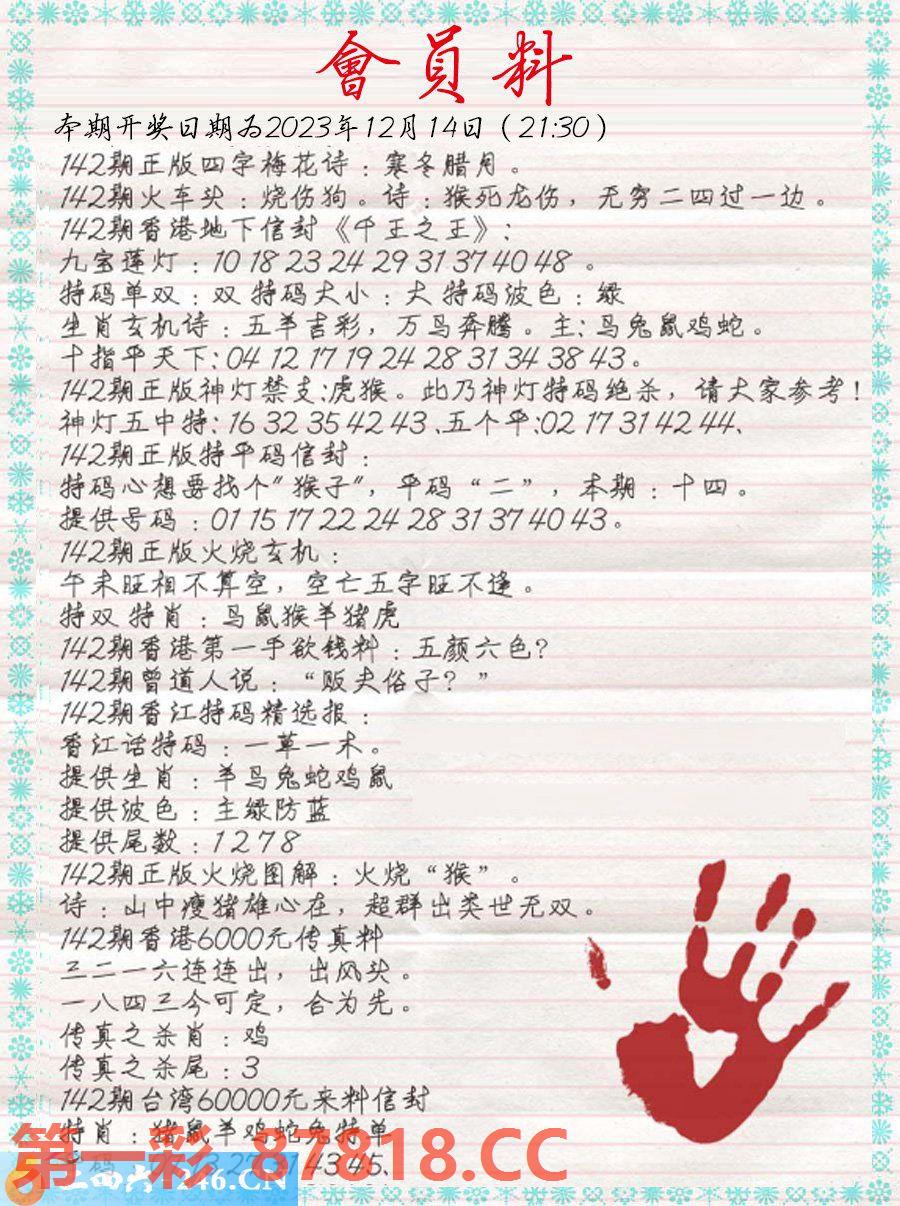 會員料
本期开奖日期为2023年12月14日（21:30）
142期正版四字梅花诗：寒冬腊月。
142期火车头：烧伤狗。诗：猴死龙伤，无穷二四过一边。
142期香港地下信封《千王之王》：
九宝莲灯：10 18 23 24 29 31 37 40 48 。
特码单双：双 特码大小：大 特码波色：绿
生肖玄机诗：五羊吉彩，万马奔腾。主：马兔鼠鸡蛇。
十指平天下：04 12 17 19 24 28 31 34 38 43。
142期正版神灯禁支:虎猴。此乃神灯特码绝杀，请大家参考！
神灯五中特：16 32 35 42 43、五个平:02 17 31 42 44、
142期正版特平码信封：
特码心想要找个"猴子"，平码“二”，本期：十四。
提供号码：01 15 17 22 24 28 31 37 40 43。
142期正版火烧玄机：
午未旺相不算空，空亡五字旺不逢。
特双 特肖：马鼠猴羊猪虎
142期香港第一手欲钱料：五颜六色？
142期曾道人说：“贩夫俗子？”
142期香江特码精选报：
香江话特码：一草一木。
提供生肖：羊马兔蛇鸡鼠
提供波色：主绿防蓝
提供尾数：1 2 7 8
142期正版火烧图解：火烧“猴”。
诗：山中瘦猪雄心在，超群出类世无双。
142期香港6000元传真料
三二一六连连出，出风头。
一八四三今可定，合为先。
传真之杀肖：鸡
传真之杀尾：3
142期台湾60000元来料信封
特肖：猪鼠羊鸡蛇兔特单
第一彩 87818.CC
43 45、
二四六 246.CN